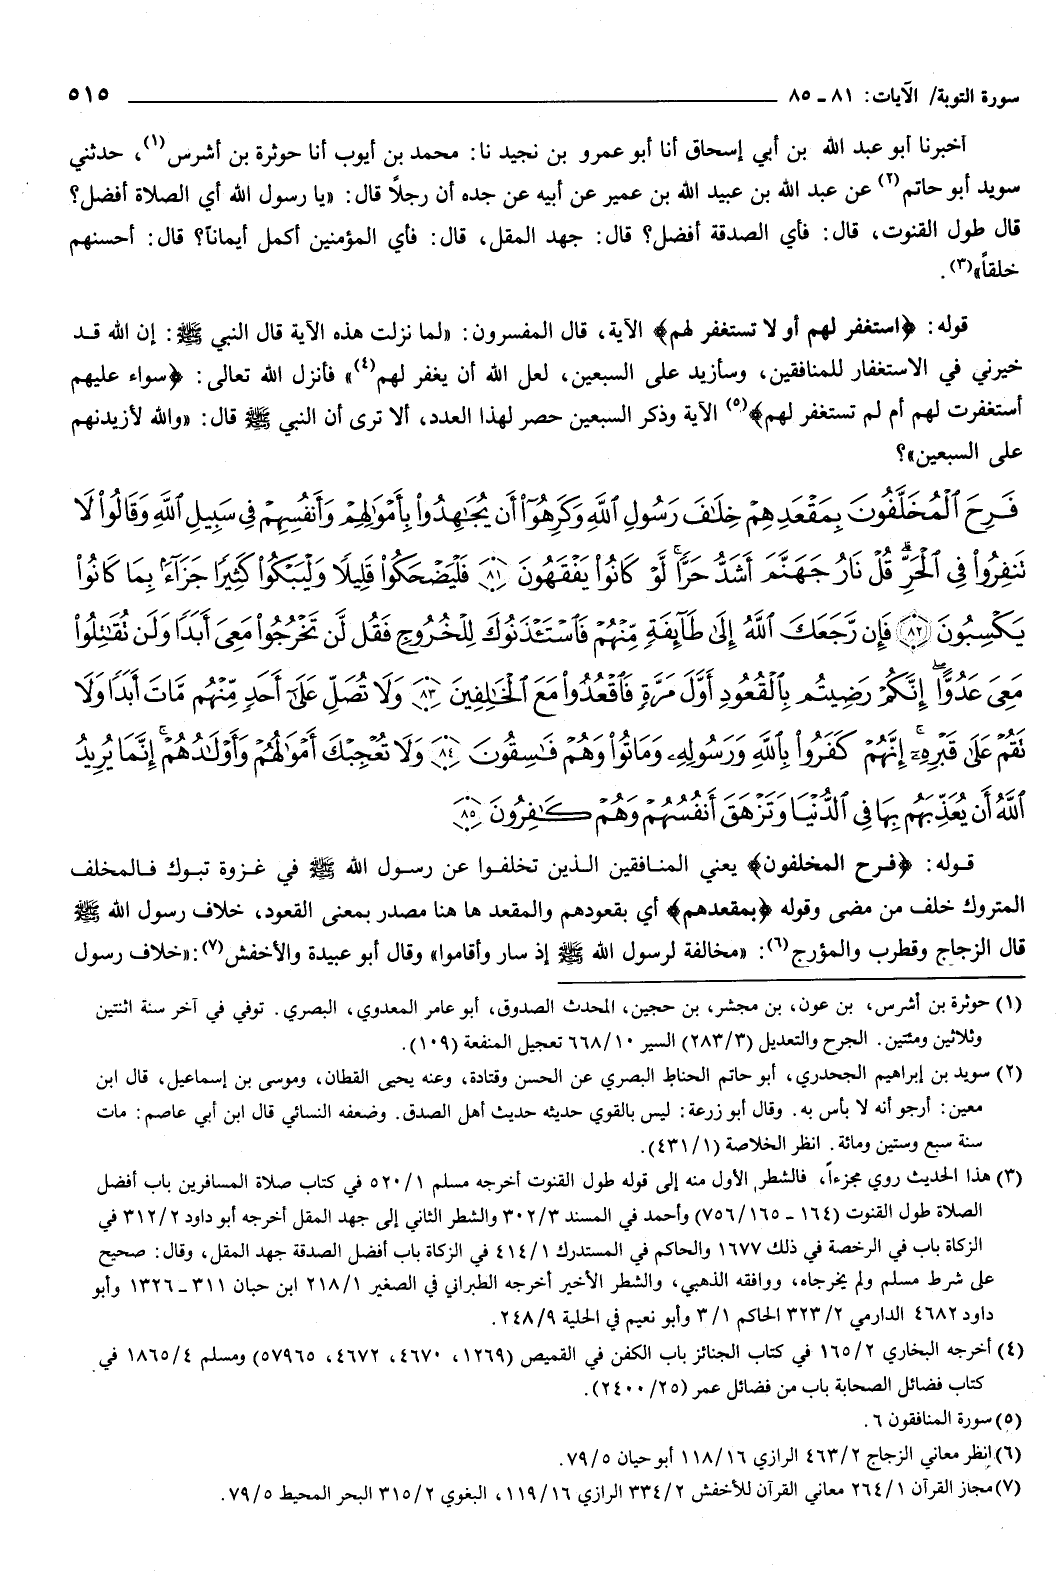 سورة التوبة/ الآيات: ٨١ - ٨٥ ٥١٥
أخبرنا أبو عبد الله بن أبي إسحاق أنا أبو عمرو بن نجيد نا: محمد بن أيوب أنا حوثرة بن أشرس(١)، حدثني
سويد أبو حاتم(٢) عن عبد الله بن عبيد الله بن عمير عن أبيه عن جده أن رجلاً قال: «يا رسول الله أي الصلاة أفضل؟
قال طول القنوت، قال: فأي الصدقة أفضل؟ قال: جهد المقل، قال: فأي المؤمنين أكمل أيماناً؟ قال: أحسنهم
خلقاً»(٣).
قوله: ﴿استغفر لهم أو لا تستغفر لهم﴾ الآية، قال المفسرون: «لما نزلت هذه الآية قال النبي ﷺ: إن الله قد
خيرني في الاستغفار للمنافقين، وسأزيد على السبعين، لعل الله أن يغفر لهم(٤)» فأنزل الله تعالى: ﴿سواء عليهم
أستغفرت لهم أم لم تستغفر لهم﴾(٥) الآية وذكر السبعين حصر لهذا العدد، ألا ترى أن النبي ﷺ قال: «والله لأزيدنهم
على السبعين»؟
فَرِحَ ٱلْمُخَلَّفُونَ بِمَقْعَدِهِمْ خِلَٰفَ رَسُولِ ٱللَّهِ وَكَرِهُوٓا۟ أَن يُجَٰهِدُوا۟ بِأَمْوَٰلِهِمْ وَأَنفُسِهِمْ فِى سَبِيلِ ٱللَّهِ وَقَالُوا۟ لَا
تَنفِرُوا۟ فِى ٱلْحَرِّ ۗ قُلْ نَارُ جَهَنَّمَ أَشَدُّ حَرًّا ۚ لَّوْ كَانُوا۟ يَفْقَهُونَ ٨١ فَلْيَضْحَكُوا۟ قَلِيلًا وَلْيَبْكُوا۟ كَثِيرًا جَزَآءًۢ بِمَا كَانُوا۟
يَكْسِبُونَ ٨٢ فَإِن رَّجَعَكَ ٱللَّهُ إِلَىٰ طَآئِفَةٍ مِّنْهُمْ فَٱسْتَـْٔذَنُوكَ لِلْخُرُوجِ فَقُل لَّن تَخْرُجُوا۟ مَعِىَ أَبَدًا وَلَن تُقَٰتِلُوا۟
مَعِىَ عَدُوًّا ۖ إِنَّكُمْ رَضِيتُم بِٱلْقُعُودِ أَوَّلَ مَرَّةٍ فَٱقْعُدُوا۟ مَعَ ٱلْخَٰلِفِينَ ٨٣ وَلَا تُصَلِّ عَلَىٰٓ أَحَدٍ مِّنْهُم مَّاتَ أَبَدًا وَلَا
تَقُمْ عَلَىٰ قَبْرِهِۦٓ ۖ إِنَّهُمْ كَفَرُوا۟ بِٱللَّهِ وَرَسُولِهِۦ وَمَاتُوا۟ وَهُمْ فَٰسِقُونَ ٨٤ وَلَا تُعْجِبْكَ أَمْوَٰلُهُمْ وَأَوْلَٰدُهُمْ ۚ إِنَّمَا يُرِيدُ
ٱللَّهُ أَن يُعَذِّبَهُم بِهَا فِى ٱلدُّنْيَا وَتَزْهَقَ أَنفُسُهُمْ وَهُمْ كَٰفِرُونَ ٨٥
قوله: ﴿فرح المخلفون﴾ يعني المنافقين الذين تخلفوا عن رسول الله ﷺ في غزوة تبوك فالمخلف
المتروك خلف من مضى وقوله ﴿بمقعدهم﴾ أي بقعودهم والمقعد ها هنا مصدر بمعنى القعود، خلاف رسول الله ﷺ
قال الزجاج وقطرب والمؤرج(٦): «مخالفة لرسول الله ﷺ إذ سار وأقاموا» وقال أبو عبيدة والأخفش(٧):«خلاف رسول
(١) حوثرة بن أشرس، بن عون، بن مجشر، بن حجين، المحدث الصدوق، أبو عامر المعدوي، البصري. توفي في آخر سنة اثنتين
وثلاثين ومئتين. الجرح والتعديل (٢٨٣/٣) السير ٦٦٨/١٠ تعجيل المنفعة (١٠٩).
(٢) سويد بن إبراهيم الجحدري، أبو حاتم الحناط البصري عن الحسن وقتادة، وعنه يحيى القطان، وموسى بن إسماعيل، قال ابن
معين: أرجو أنه لا بأس به. وقال أبو زرعة: ليس بالقوي حديثه حديث أهل الصدق. وضعفه النسائي قال ابن أبي عاصم: مات
سنة سبع وستين ومائة. انظر الخلاصة (٤٣١/١).
(٣) هذا الحديث روي مجزءاً، فالشطر الأول منه إلى قوله طول القنوت أخرجه مسلم ٥٢٠/١ في كتاب صلاة المسافرين باب أفضل
الصلاة طول القنوت (١٦٤ - ٧٥٦/١٦٥) وأحمد في المسند ٣٠٢/٣ والشطر الثاني إلى جهد المقل أخرجه أبو داود ٣١٢/٢ في
الزكاة باب في الرخصة في ذلك ١٦٧٧ والحاكم في المستدرك ٤١٤/١ في الزكاة باب أفضل الصدقة جهد المقل، وقال: صحيح
على شرط مسلم ولم يخرجاه، ووافقه الذهبي، والشطر الأخير أخرجه الطبراني في الصغير ٢١٨/١ ابن حبان ٣١١ - ١٣٢٦ وأبو
داود ٤٦٨٢ الدارمي ٣٢٣/٢ الحاكم ٣/١ وأبو نعيم في الحلية ٢٤٨/٩.
(٤) أخرجه البخاري ١٦٥/٢ في كتاب الجنائز باب الكفن في القميص (١٢٦٩، ٤٦٧٠، ٤٦٧٢، ٥٧٩٦٥) ومسلم ١٨٦٥/٤ في
كتاب فضائل الصحابة باب من فضائل عمر (٢٤٠٠/٢٥).
(٥) سورة المنافقون ٦.
(٦) انظر معاني الزجاج ٤٦٣/٢ الرازي ١١٨/١٦ أبو حيان ٧٩/٥.
(٧) مجاز القرآن ٢٦٤/١ معاني القرآن للأخفش ٣٣٤/٢ الرازي ١١٩/١٦، البغوي ٣١٥/٢ البحر المحيط ٧٩/٥.